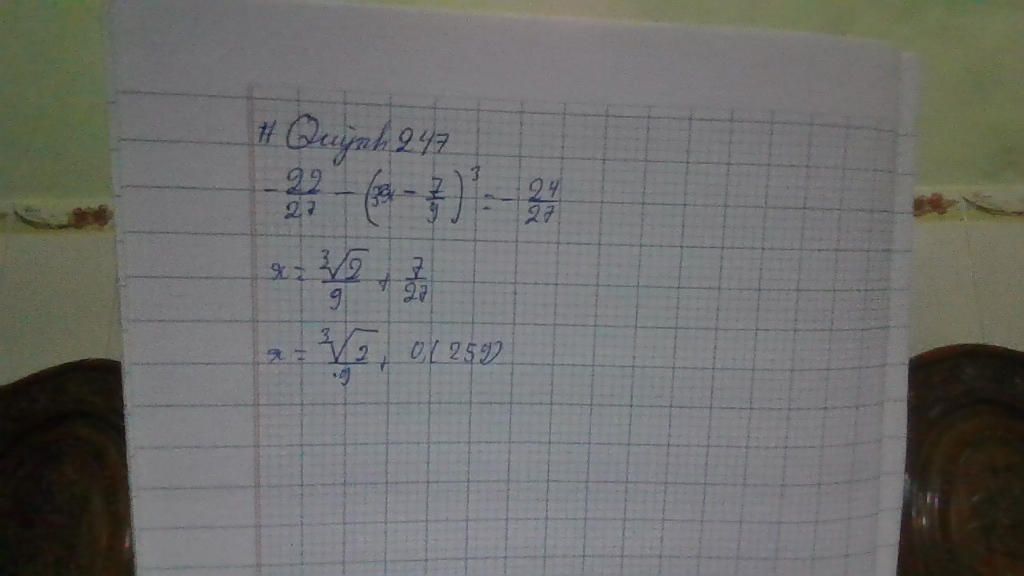 # Quỳnh 247
-22/27 - (3x - 7/9)³ = -24/27
x = ∛2/9 + 7/27
x = ∛2/9 + 0,(259)